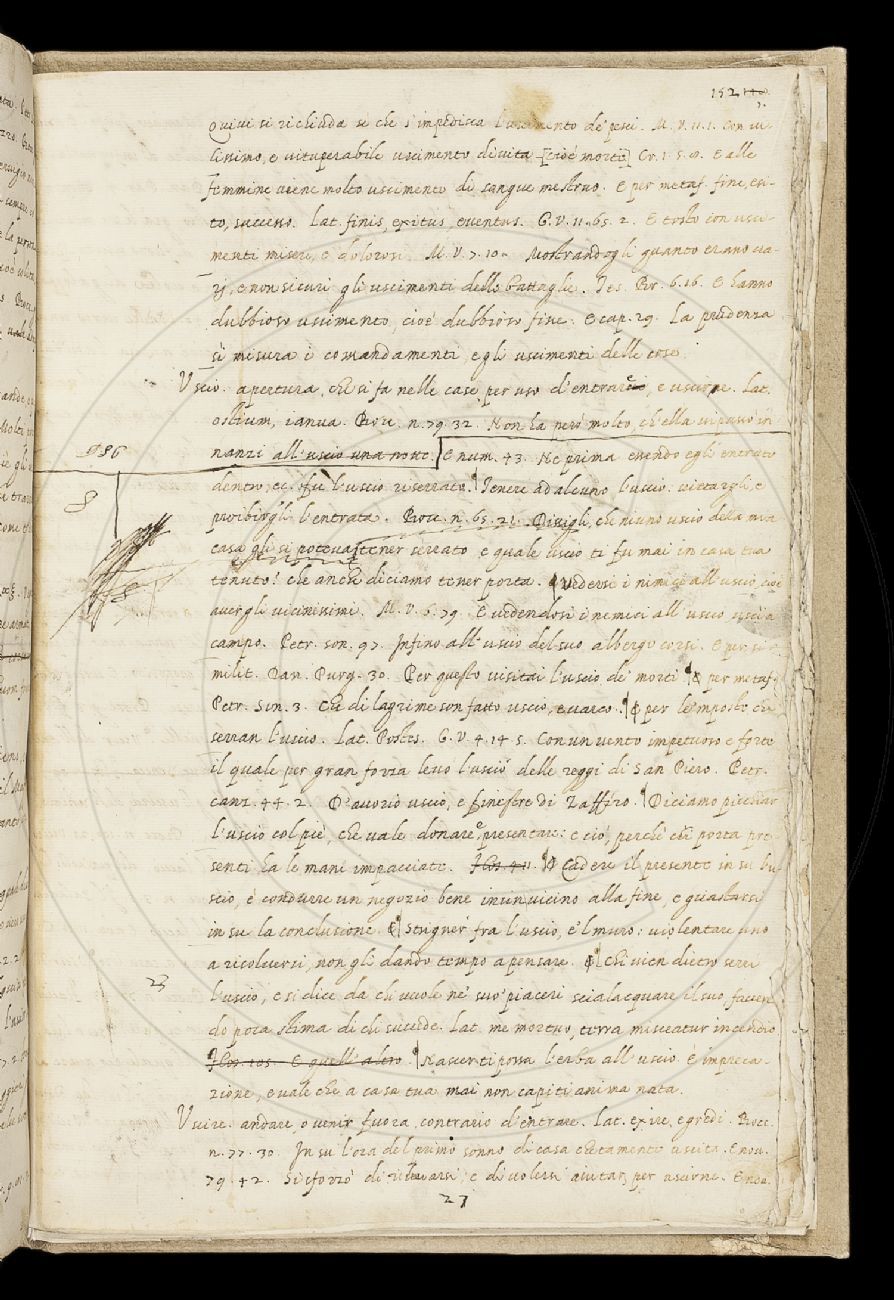 152
Quivi si richiuda sì che s'impedisca l'uscimento de' pesci. M. V. 11. 1. Con vi-
lissimo, e vituperabile uscimento di vita [cioè morte] Cr. 1. 5. 8. E alle
femmine viene molto uscimento di sangue mestruo. E per metaf. fine, esi-
to, successo. Lat. finis, exitus, eventus. G. V. 11. 65. 2. E tosto con usci-
menti miseri, e dolorosi. M. V. 7. 10. Mostrandogli quanto erano va-
rj, e non sicuri gli uscimenti delle battaglie. Tes. Br. 6. 16. E hanno
dubbioso uscimento, cioè dubbioso fine. E cap. 29. La prudenza
sì misura i comandamenti, e gli uscimenti delle cose.
Uscio. apertura, che si fa nelle case, per uso d'entrare, e uscirne. Lat.
ostium, ianua. Bocc. n. 79. 32. Non ha però molto, ch'ella vi passò in
nanzi all'uscio una notte. E num. 43. Ne prima essendo egli entrato
986
dentro, ec. fu l'uscio riserrato. Tenere ad alcuno l'uscio. vietargli, e
proibirgli l'entrata. Bocc. n. 65. 21. Dissigli, che niuno uscio della mia
casa gli si poteva tener serrato e quale uscio ti fu mai in casa tua
tenuto! che anche diciamo tener porta. Vedersi i nimici all'uscio, cioè
avergli vicinissimi. M. V. 6. 79. E vedendosi i nemici all'uscio uscì a
campo. Petr. son. 97. Infino all'uscio del suo albergo corsi. E per si-
milit. Dan. Purg. 30. Per questo visitai l'uscio de' morti E per metaf.
Petr. Son. 3. Che di lagrime son fatto uscio, e varco. E per le'mposte che
serran l'uscio. Lat. Postes. G. V. 4. 14 5. Con un vento impetuoso e forte
il quale per gran forza levò l'uscio delle reggi di San Piero. Petr.
canz. 44. 2. D'avorio uscio, e finestre di Zaffiro. Diciamo picchiar
l'uscio col piè, che vale donare, e presentare: e ciò, perchè chi porta pre-
senti ha le mani impacciate. Cadere il presente in su l'u-
scio, è condurre un negozio bene in un vicino alla fine, e guastarsi
in su la conclusione. E Strigner fra l'uscio, e'l muro: violentare uno
a risolversi, non gli dando tempo a pensare. E Chi vien dietro serri
23
l'uscio, e si dice da chi vuole ne' suo' piaceri scialacquare il suo, facen
do poca stima di chi succede. Lat. me mortuo, terra misceatur incendio
E quell'altro Nascer ti possa l'erba all'uscio. E impreca-
zione, e vale che a casa tua mai non capiti anima nata.
Uscire. andare, o venir fuora, contrario d'entrare. Lat. exire, egredi. Bocc.
n. 77. 30. In su l'ora del primo sonno di casa chetamente uscita. E nov.
79. 42. Si sforzò di rilevarsi, e di volersi aiutar, per uscirne. E
27